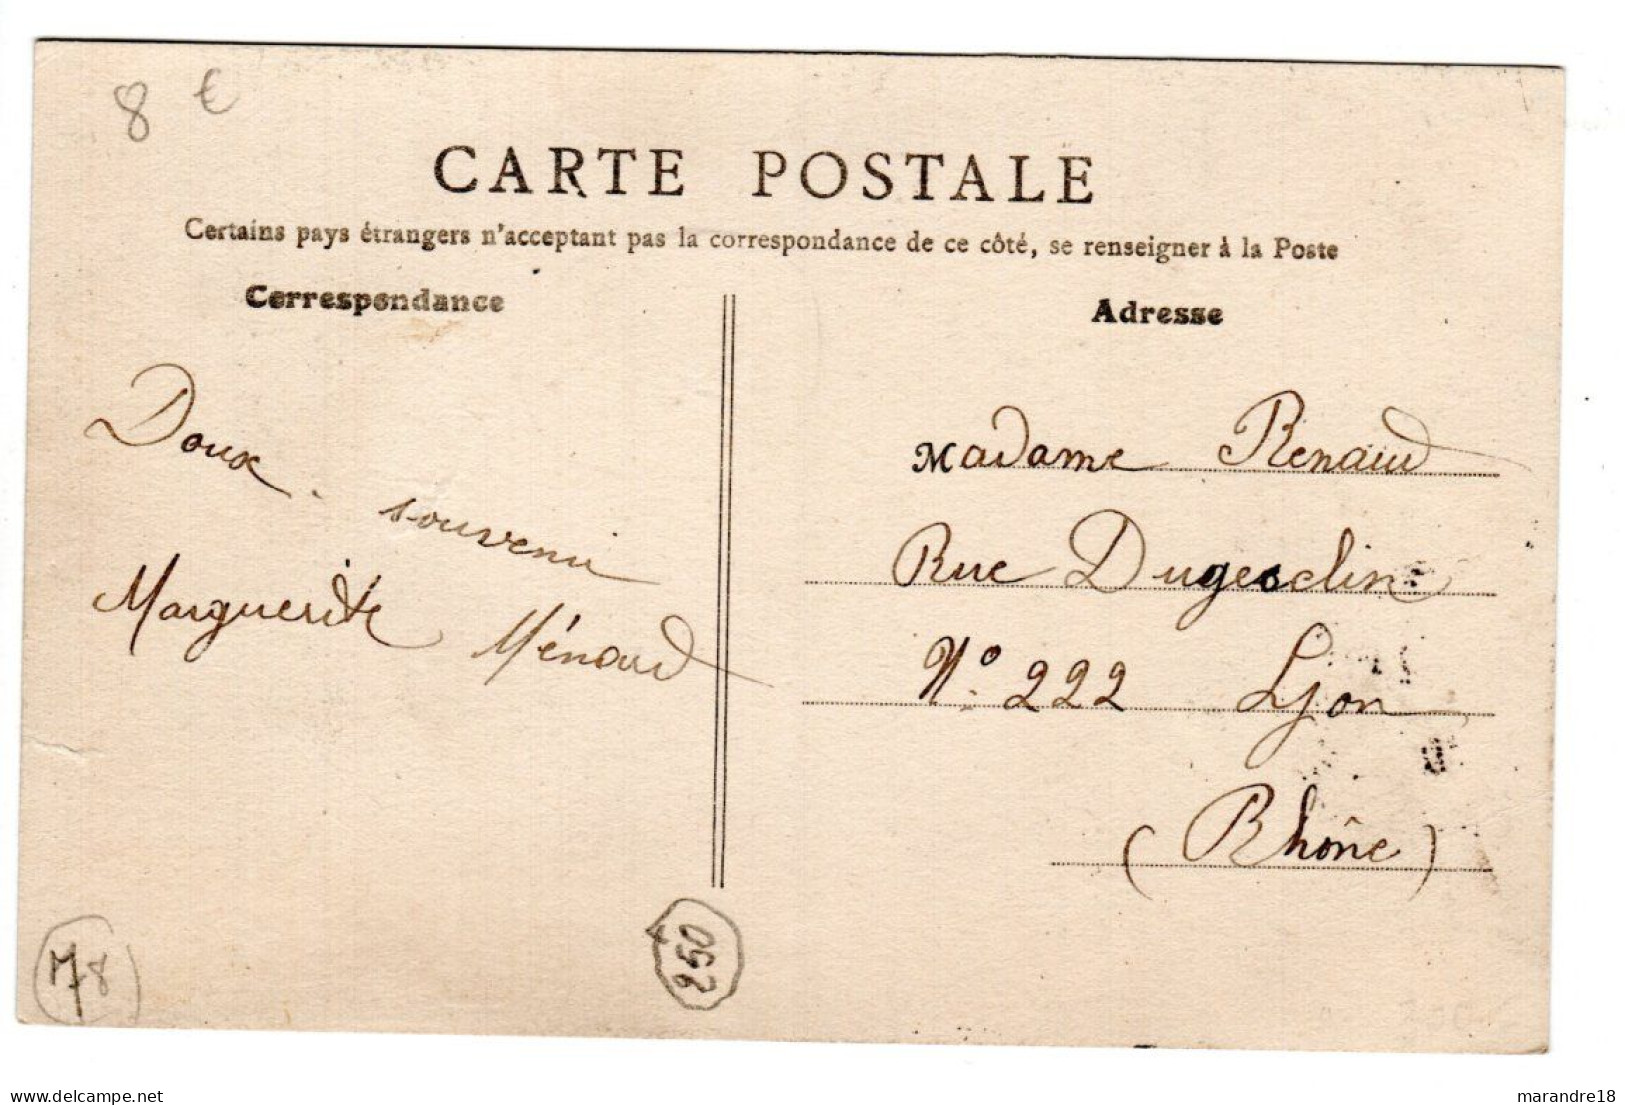 8 €
CARTE POSTALE
Certains pays étrangers n'acceptant pas la correspondance de ce côté, se renseigner à la Poste
Correspondance
Doux souvenir
Marguerite Ménaud
Adresse
Madame Renaud
Rue Dugesclin
N° 222 Lyon
(Rhône)
78
250
www.delcampe.net
marandre18